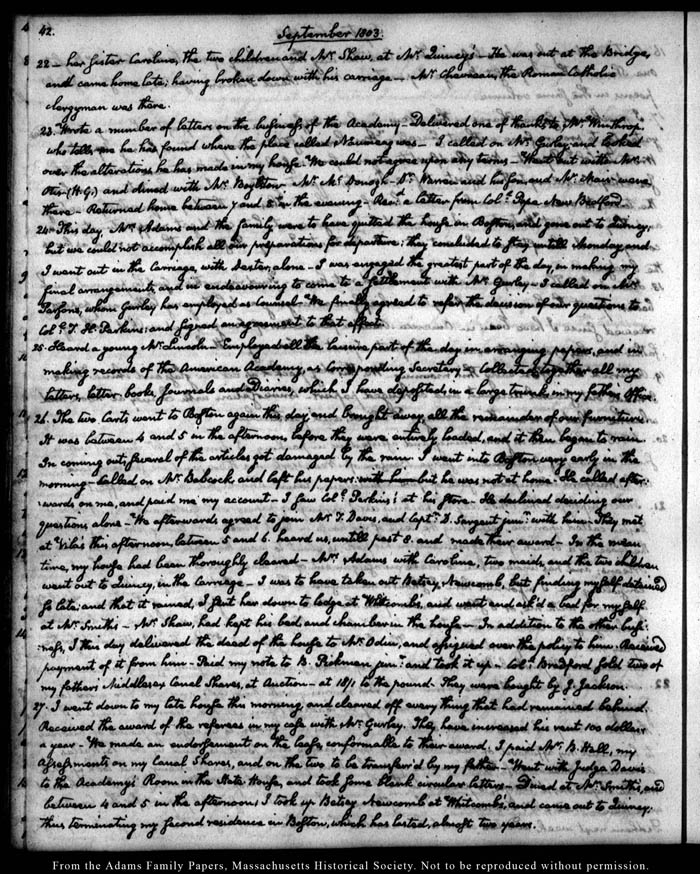 42.
September 1803.
22 - her sister Caroline, the two children and Mr. Shaw, at Mr. Quincy's - He was out at the Bridge,
and came home late; having broken down with his carriage - Mr. Cheverus, the Roman Catholic
clergyman was there.
23. Wrote a number of letters on the business of the Academy - Delivered one of thanks to Mr. Winthrop,
who tells me he has found where the place called Naumeag was - I called on Mr. Gurley, and looked
over the alterations he has made in my house. We could not agree upon any terms - Went out with Mr.
Otis (H.G.) and dined with Mr. Boylston - Mr. Mc.Donogh - Dr. Warren and his son and Mr. Mair were
there - Returned home between 7 and 8 in the evening - Recd. a letter from Coll. Pope New Bedford.
24. This day, Mrs. Adams and the family were to have quitted the house in Boston, and gone out to Quincy;
but we could not accomplish all our preparations for departure; they concluded to stay untill Monday and
I went out in the Carriage, with Hester, alone - I was engaged the greatest part of the day, in making my
final arrangements, and in endeavouring to come to a settlement with Mr. Gurley - I called on Mr.
Parsons, whom Gurley has employed as Counsel - We finally agreed to refer the decision of our questions to
Coll. T. H. Perkins; and signed an agreement to that effect.
25. Heard a young Mr. Lincoln - Employed all the leisure part of the day in arranging papers, and in
making records of the American Academy, as Corresponding Secretary - Collected together all my
letters, letter books, Journals and Diaries, which I have deposited, in a large trunk, in my fathers Office.
26. The two Carts went to Boston again this day, and brought away all the remainder of our furniture.
It was between 4 and 5 in the afternoon, before they were entirely loaded, and it then began to rain.
In coming out, several of the articles got damaged by the rain. I went into Boston very early in the
morning - Called on Mr. Babcock, and left his papers but he was not at home - He called after-
wards on me, and paid me my account - I saw Coll. Perkins; at his store - He declined deciding our
questions alone - We afterwards agreed to join Mr. I. Davis, and Captn. D. Sargent junr. with him - They met
at Vila's this afternoon, between 5 and 6. heard us, untill past 8. and made their award - In the mean
time, my house had been thoroughly cleared - Mrs. Adams with Caroline, two maids, and the two children
went out to Quincy, in the Carriage - I was to have taken out Betsey Newcomb, but finding myself detained
so late; and that it rained, I sent her down to lodge at Whitcomb's, and went and ask'd a bed for myself
at Mr. Smith's - Mr. Shaw, had kept his bed, and chamber in the house - In addition to the other busi-
ness, I this day delivered the deed of the house to Mr. Odin, and assigned over the policy to him. Received
payment of it from him - Paid my note to B. Pickman junr: and took it up - Coll. Bradford sold two of
my fathers Middlesex Canal Shares, at Auction - at 18/1 to the pound. They were bought by J. Jackson.
27. I went down to my late house this morning, and cleared off every thing that had remained behind.
Received the award of the referees in my case with Mr. Gurley. They have increased his rent 100 dollars
a year - We made an endorsement on the lease, conformable to their award. I paid Mr. B. Hall, my
assessments on my Canal Shares, and on the two to be transfer'd by my father - Went with Judge Davis
to the Academy's Room in the State House, and took some blank circular letters - Dined at Mr. Smith's, and
between 4 and 5 in the afternoon, I took up Betsey Newcomb at Whitcomb's, and came out to Quincy;
thus terminating my second residence in Boston, which has lasted, almost two years.
From the Adams Family Papers, Massachusetts Historical Society. Not to be reproduced without permission.